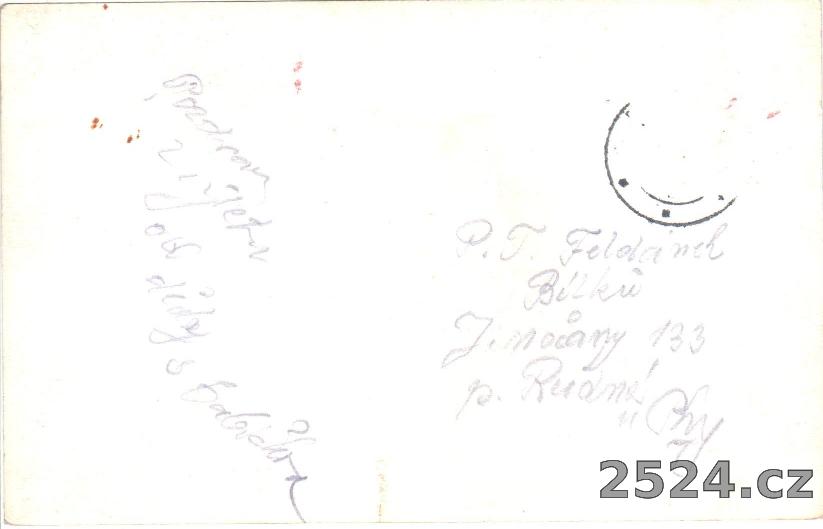 Pozdrav
z výletu
od dědy
s babičkou
P. T. Feldánek
Bílků
Jinočany 133
p. Rudné
u Phy
2524.cz